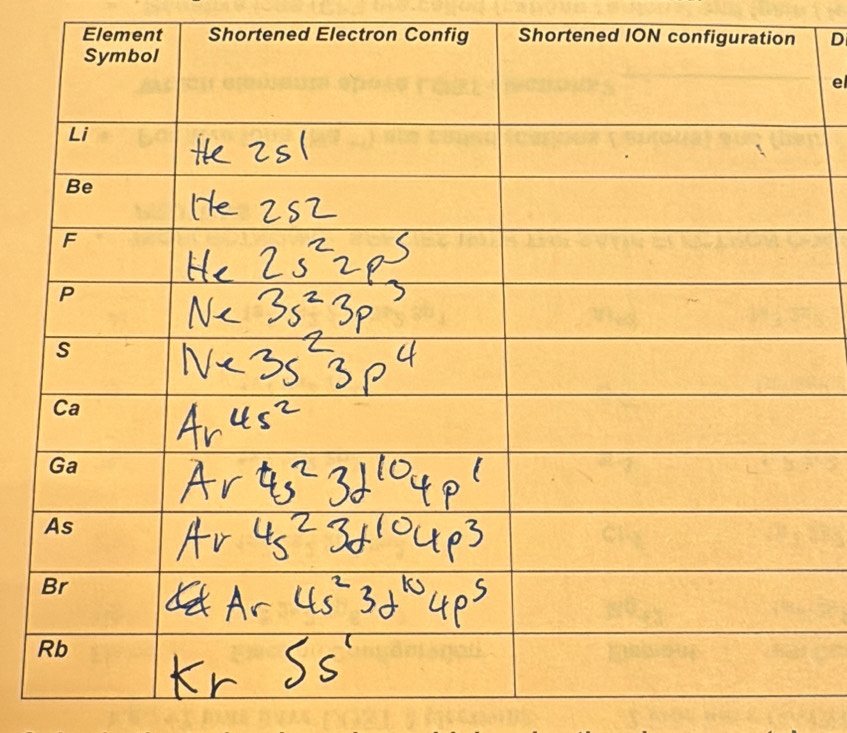 Element Symbol Shortened Electron Config Shortened ION configuration
Li He 2s1
Be He 2s2
F He 2s²2p⁵
P Ne 3s²3p³
S Ne 3s²3p⁴
Ca Ar 4s²
Ga Ar 4s²3d¹⁰4p¹
As Ar 4s²3d¹⁰4p3
Br Ar 4s²3d¹⁰4p⁵
Rb Kr 5s¹